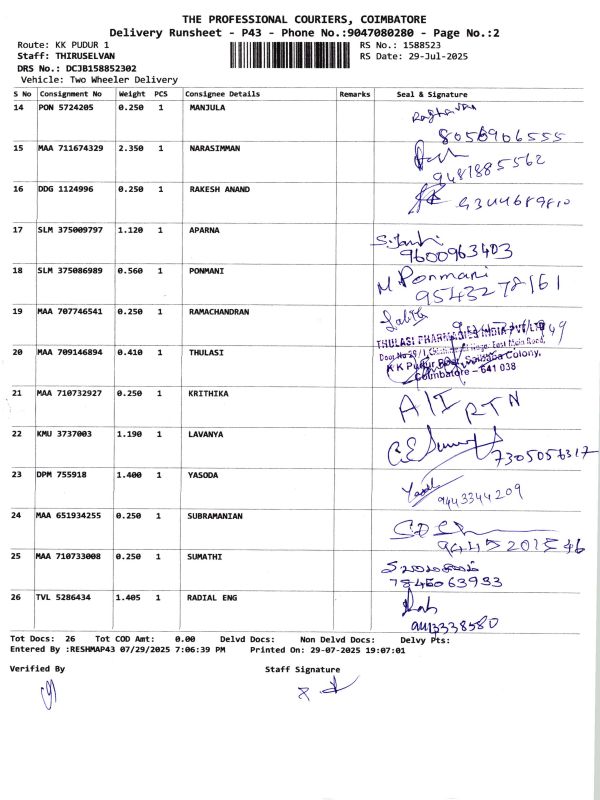 THE PROFESSIONAL COURIERS, COIMBATORE
Delivery Runsheet - P43 - Phone No.:9047080280 - Page No.:2
Route: KK PUDUR 1 RS No.: 1588523
Staff: THIRUSELVAN RS Date: 29-Jul-2025
DRS No.: DCJB158852302
Vehicle: Two Wheeler Delivery
S No Consignment No Weight PCS Consignee Details Remarks Seal & Signature
14 PON 5724205 0.250 1 MANJULA
8056906555
15 MAA 711674329 2.350 1 NARASIMMAN
9481885562
16 DDG 1124996 0.250 1 RAKESH ANAND
17 SLM 375009797 1.120 1 APARNA
9600963403
18 SLM 375086989 0.560 1 PONMANI M Ponmani
9543278161
19 MAA 707746541 0.250 1 RAMACHANDRAN
THULASI PHARMACIES INDIA PVT LTD
20 MAA 709146894 0.410 1 THULASI
K K Pudur Post, Saibaba Colony,
Coimbatore - 641 038
21 MAA 710732927 0.250 1 KRITHIKA A/I RTN
22 KMU 3737003 1.190 1 LAVANYA
7305056317
23 DPM 755918 1.400 1 YASODA
9443344209
24 MAA 651934255 0.250 1 SUBRAMANIAN
25 MAA 710733008 0.250 1 SUMATHI
26 TVL 5286434 1.405 1 RADIAL ENG
Tot Docs: 26 Tot COD Amt: 0.00 Delvd Docs: Non Delvd Docs: Delvy Pts:
Entered By :RESHMAP43 07/29/2025 7:06:39 PM Printed On: 29-07-2025 19:07:01
Verified By Staff Signature